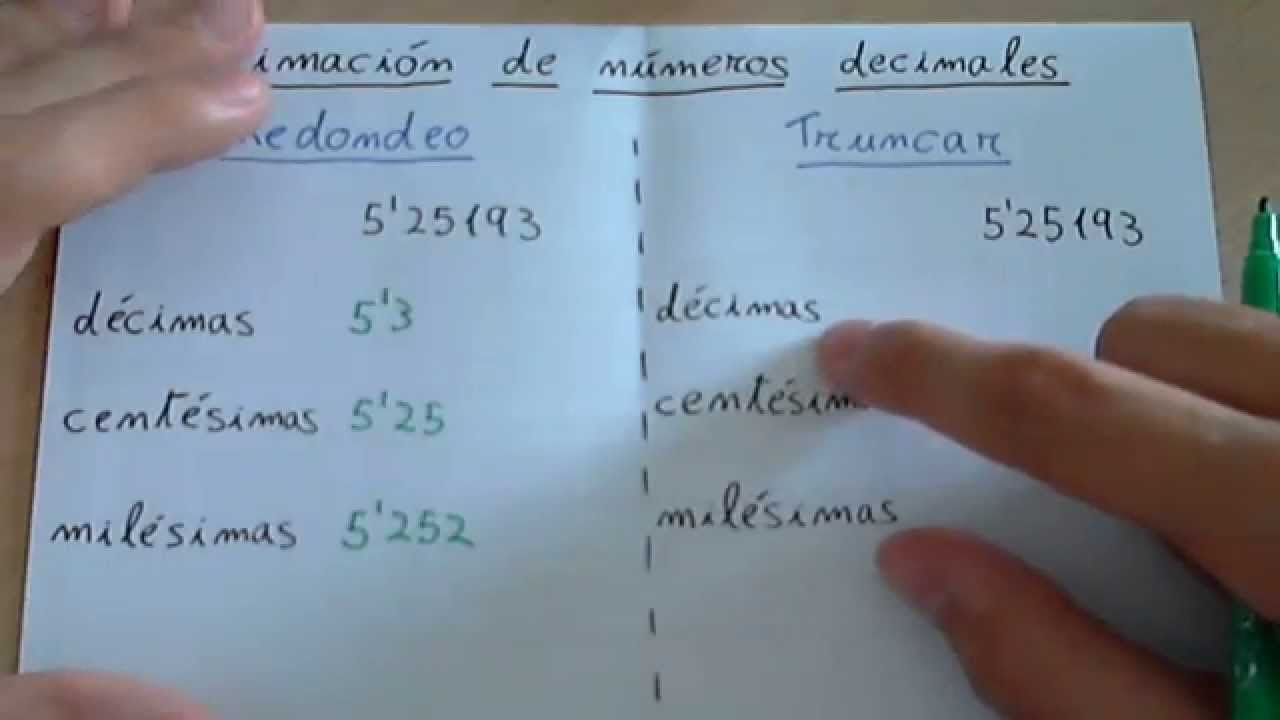 imación de números decimales
edondeo
5'25193
décimas 5'3
centésimas 5'25
milésimas 5'252
Truncar
5'25193
décimas
centésim
milésimas